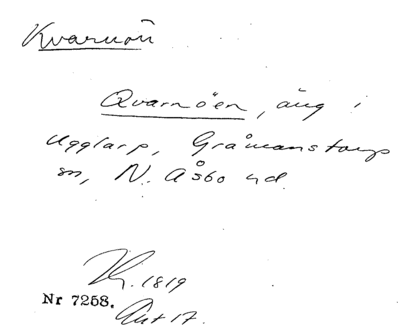 Kvarnön
Qvarnöen, äng i
Ugglarp, Gråmanstorps
sn, N. Åsbo hd.
1819
Nr 7258.
Akt 17.